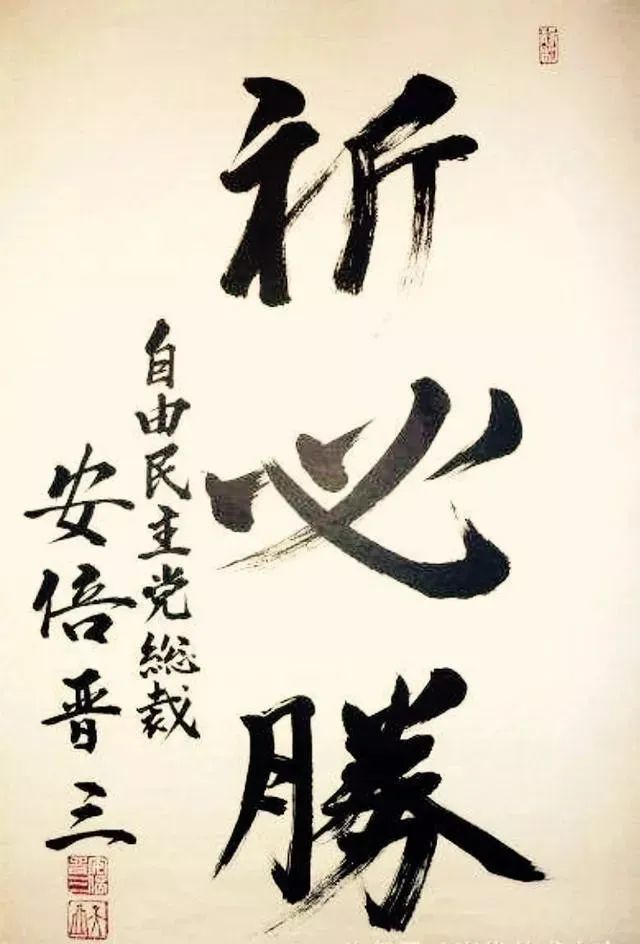 祈必勝
自由民主党総裁
安倍晋三